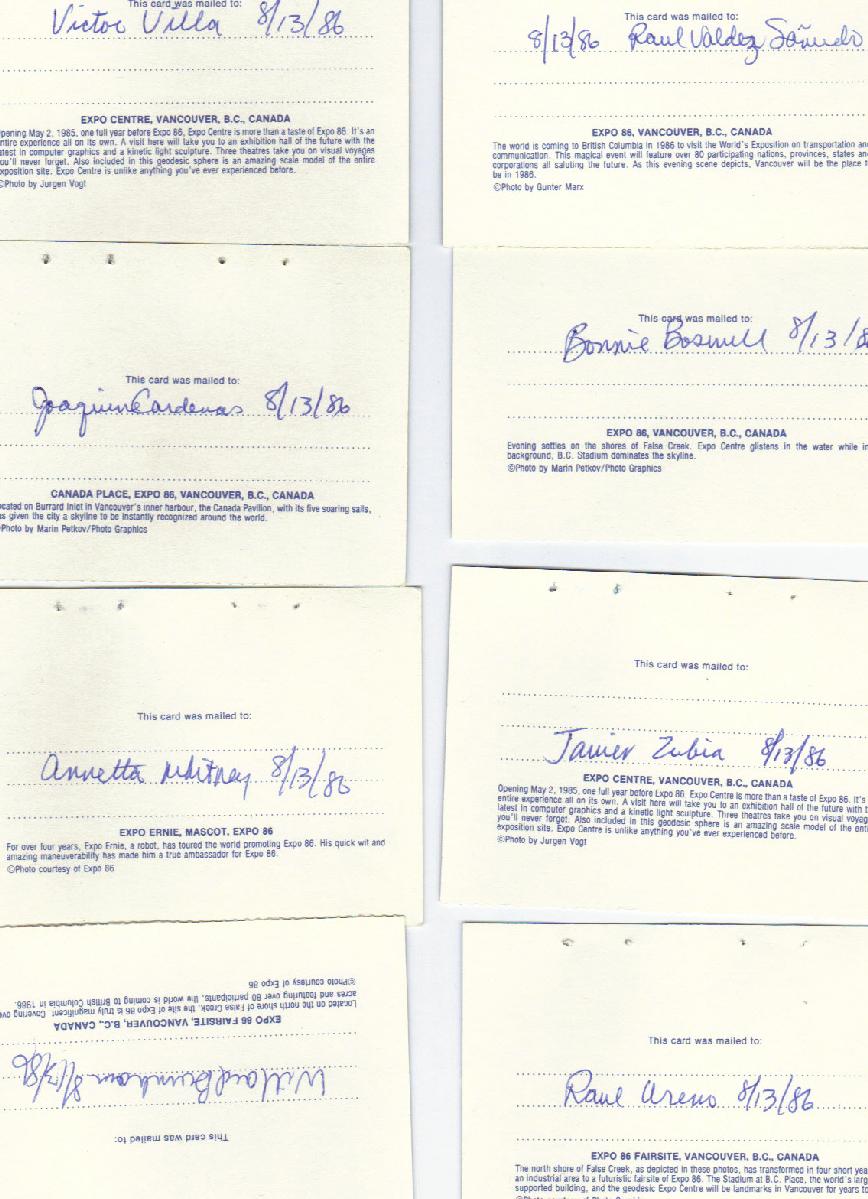 This card was mailed to:
Victor Villa 8/13/86
EXPO CENTRE, VANCOUVER, B.C., CANADA
pening May 2, 1985, one full year before Expo 86, Expo Centre is more than a taste of Expo 86. It's an
ntire experience all on its own. A visit here will take you to an exhibition hall of the future with the
atest in computer graphics and a kinetic light sculpture. Three theatres take you on visual voyages
ou'll never forget. Also included in this geodesic sphere is an amazing scale model of the entire
xposition site. Expo Centre is unlike anything you've ever experienced before.
©Photo by Jurgen Vogt
This card was mailed to:
8/13/86 Raul Valdez Sañudo
EXPO 86, VANCOUVER, B.C., CANADA
The world is coming to British Columbia in 1986 to visit the World's Exposition on transportation and
communication. This magical event will feature over 80 participating nations, provinces, states and
corporations all saluting the future. As this evening scene depicts, Vancouver will be the place t
be in 1986.
©Photo by Gunter Marx
This card was mailed to:
Joaquin Cardenas 8/13/86
CANADA PLACE, EXPO 86, VANCOUVER, B.C., CANADA
ocated on Burrard Inlet in Vancouver's inner harbour, the Canada Pavilion, with its five soaring sails,
as given the city a skyline to be instantly recognized around the world.
Photo by Marin Petkov/Photo Graphics
This card was mailed to:
Bonnie Boswell 8/13/8
EXPO 86, VANCOUVER, B.C., CANADA
Evening settles on the shores of False Creek. Expo Centre glistens in the water while in
background, B.C. Stadium dominates the skyline.
©Photo by Marin Petkov/Photo Graphics
This card was mailed to:
Annetta Whitney 8/13/86
EXPO ERNIE, MASCOT, EXPO 86
For over four years, Expo Ernie, a robot, has toured the world promoting Expo 86. His quick wit and
amazing maneuverability has made him a true ambassador for Expo 86.
©Photo courtesy of Expo 86
This card was mailed to:
Javier Zubia 8/13/86
EXPO CENTRE, VANCOUVER, B.C., CANADA
Opening May 2, 1985, one full year before Expo 86, Expo Centre is more than a taste of Expo 86. It's
entire experience all on its own. A visit here will take you to an exhibition hall of the future with t
latest in computer graphics and a kinetic light sculpture. Three theatres take you on visual voyag
you'll never forget. Also included in this geodesic sphere is an amazing scale model of the enti
exposition site. Expo Centre is unlike anything you've ever experienced before.
©Photo by Jurgen Vogt
This card was mailed to:
Willard 8/13/86
EXPO 86 FAIRSITE, VANCOUVER, B.C., CANADA
Located on the north shore of False Creek, the site of Expo 86 is truly magnificent. Covering ov
acres and featuring over 80 participants, the world is coming to British Columbia in 1986.
©Photo courtesy of Expo 86
This card was mailed to:
Raul Areno 8/13/86
EXPO 86 FAIRSITE, VANCOUVER, B.C., CANADA
The north shore of False Creek, as depicted in these photos, has transformed in four short yea
an industrial area to a futuristic fairsite of Expo 86. The Stadium at B.C. Place, the world's larg
supported building, and the geodesic Expo Centre will be landmarks in Vancouver for years to